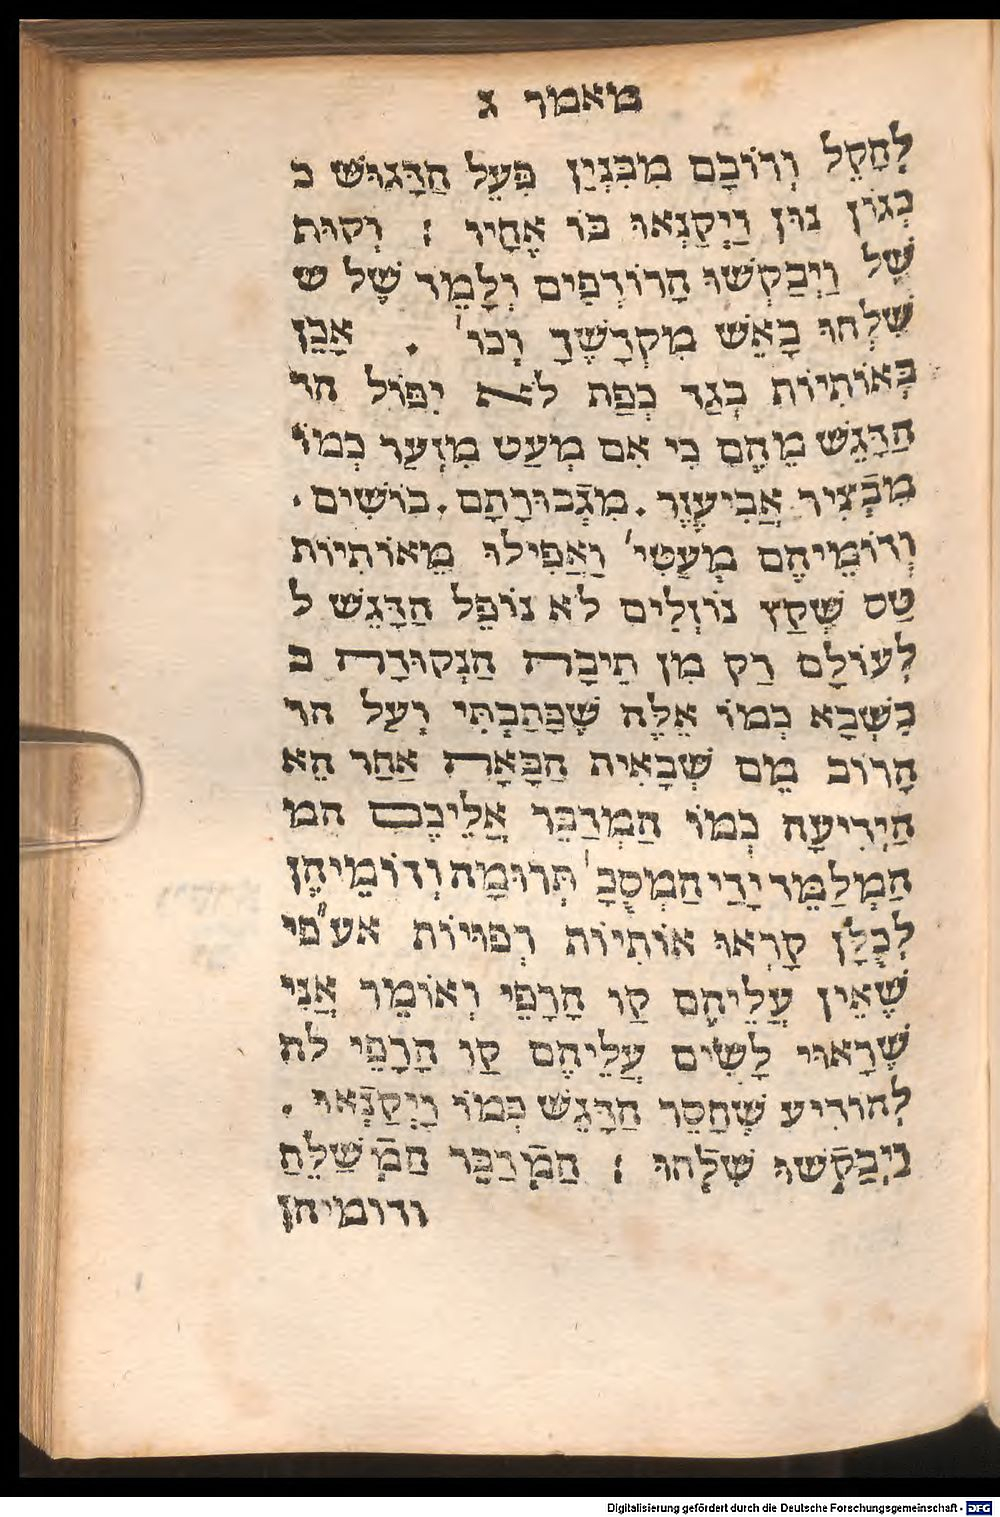 מאמר ג
לְהָקֵל וְרוֹבָם מִבִּנְיַן פִּעֵל הַדָּגוּשׁ כ
כְּגוֹן נוּן וַיְקַנְאוּ בוֹ אֶחָיו : וְקוּף
שֶׁל וַיְבַקְשׁוּ הָרוֹדְפִים וְלָמֵד שֶׁל ש
שִׁלְחוּ בָאֵשׁ מִקְדָשֶׁךָ וְכוּ' . אָכֵן
בְּאוֹתִיּוֹת בְּגַד כְּפַת לֹא יִפּוֹל הד
הַדָּגֵשׁ מֵהֶם כִּי אִם מְעַט מִזְעַר כְּמוֹ
מִבְצִיר אֲבִיעֶזֶר . מִגְבוּרָתָם . בוֹשִׁים .
וְדוֹמֵיהֶם מְעַטִי' וַאֲפִילוּ מֵאוֹתִיּוֹת
טַס שֶׁקַץ נוֹזְלִים לֹא נוֹפֵל הַדָּגֵשׁ ל
לְעוֹלָם רַק מִן תֵּיבָה הַנְקוּדָה כ
כְּשְׁבָא כְּמוֹ אֵלֶּה שֶׁכָּתַבְתִּי וְעַל הר
הָרוֹב מֵם שְׁבָאִית הַבָּאָה אַחַר הֵא
הַיְדִיעָה כְּמוֹ הַמְדַבֵּר אֲלֵיכֶם המ
הַמְלַמֵּד יָדַי הַמְסֻכָּ' תְּרוּמָה וְדוֹמֵיהֶן
לְכֻלָּן קָרְאוּ אוֹתִיּוֹת רְפוּיוֹת אע"פי
שֶׁאֵין עֲלֵיהֶם קַו הָרָפֵי וְאוֹמֵר אֲנִי
שֶׁרָאוּי לָשִׂים עֲלֵיהֶם קַו הָרָפֵי לה
לְהוֹדִיעַ שְׁחַסֵר הַדָּגֵשׁ כְּמוֹ וַיְקַנְאוּ .
וַיְבַקְשׁוּ שִׁלְחוּ : הַמְדַבֵּר הַמְשַׁלֵּחַ
ודומיהן
Digitalisierung gefördert durch die Deutsche Forschungsgemeinschaft - DFG